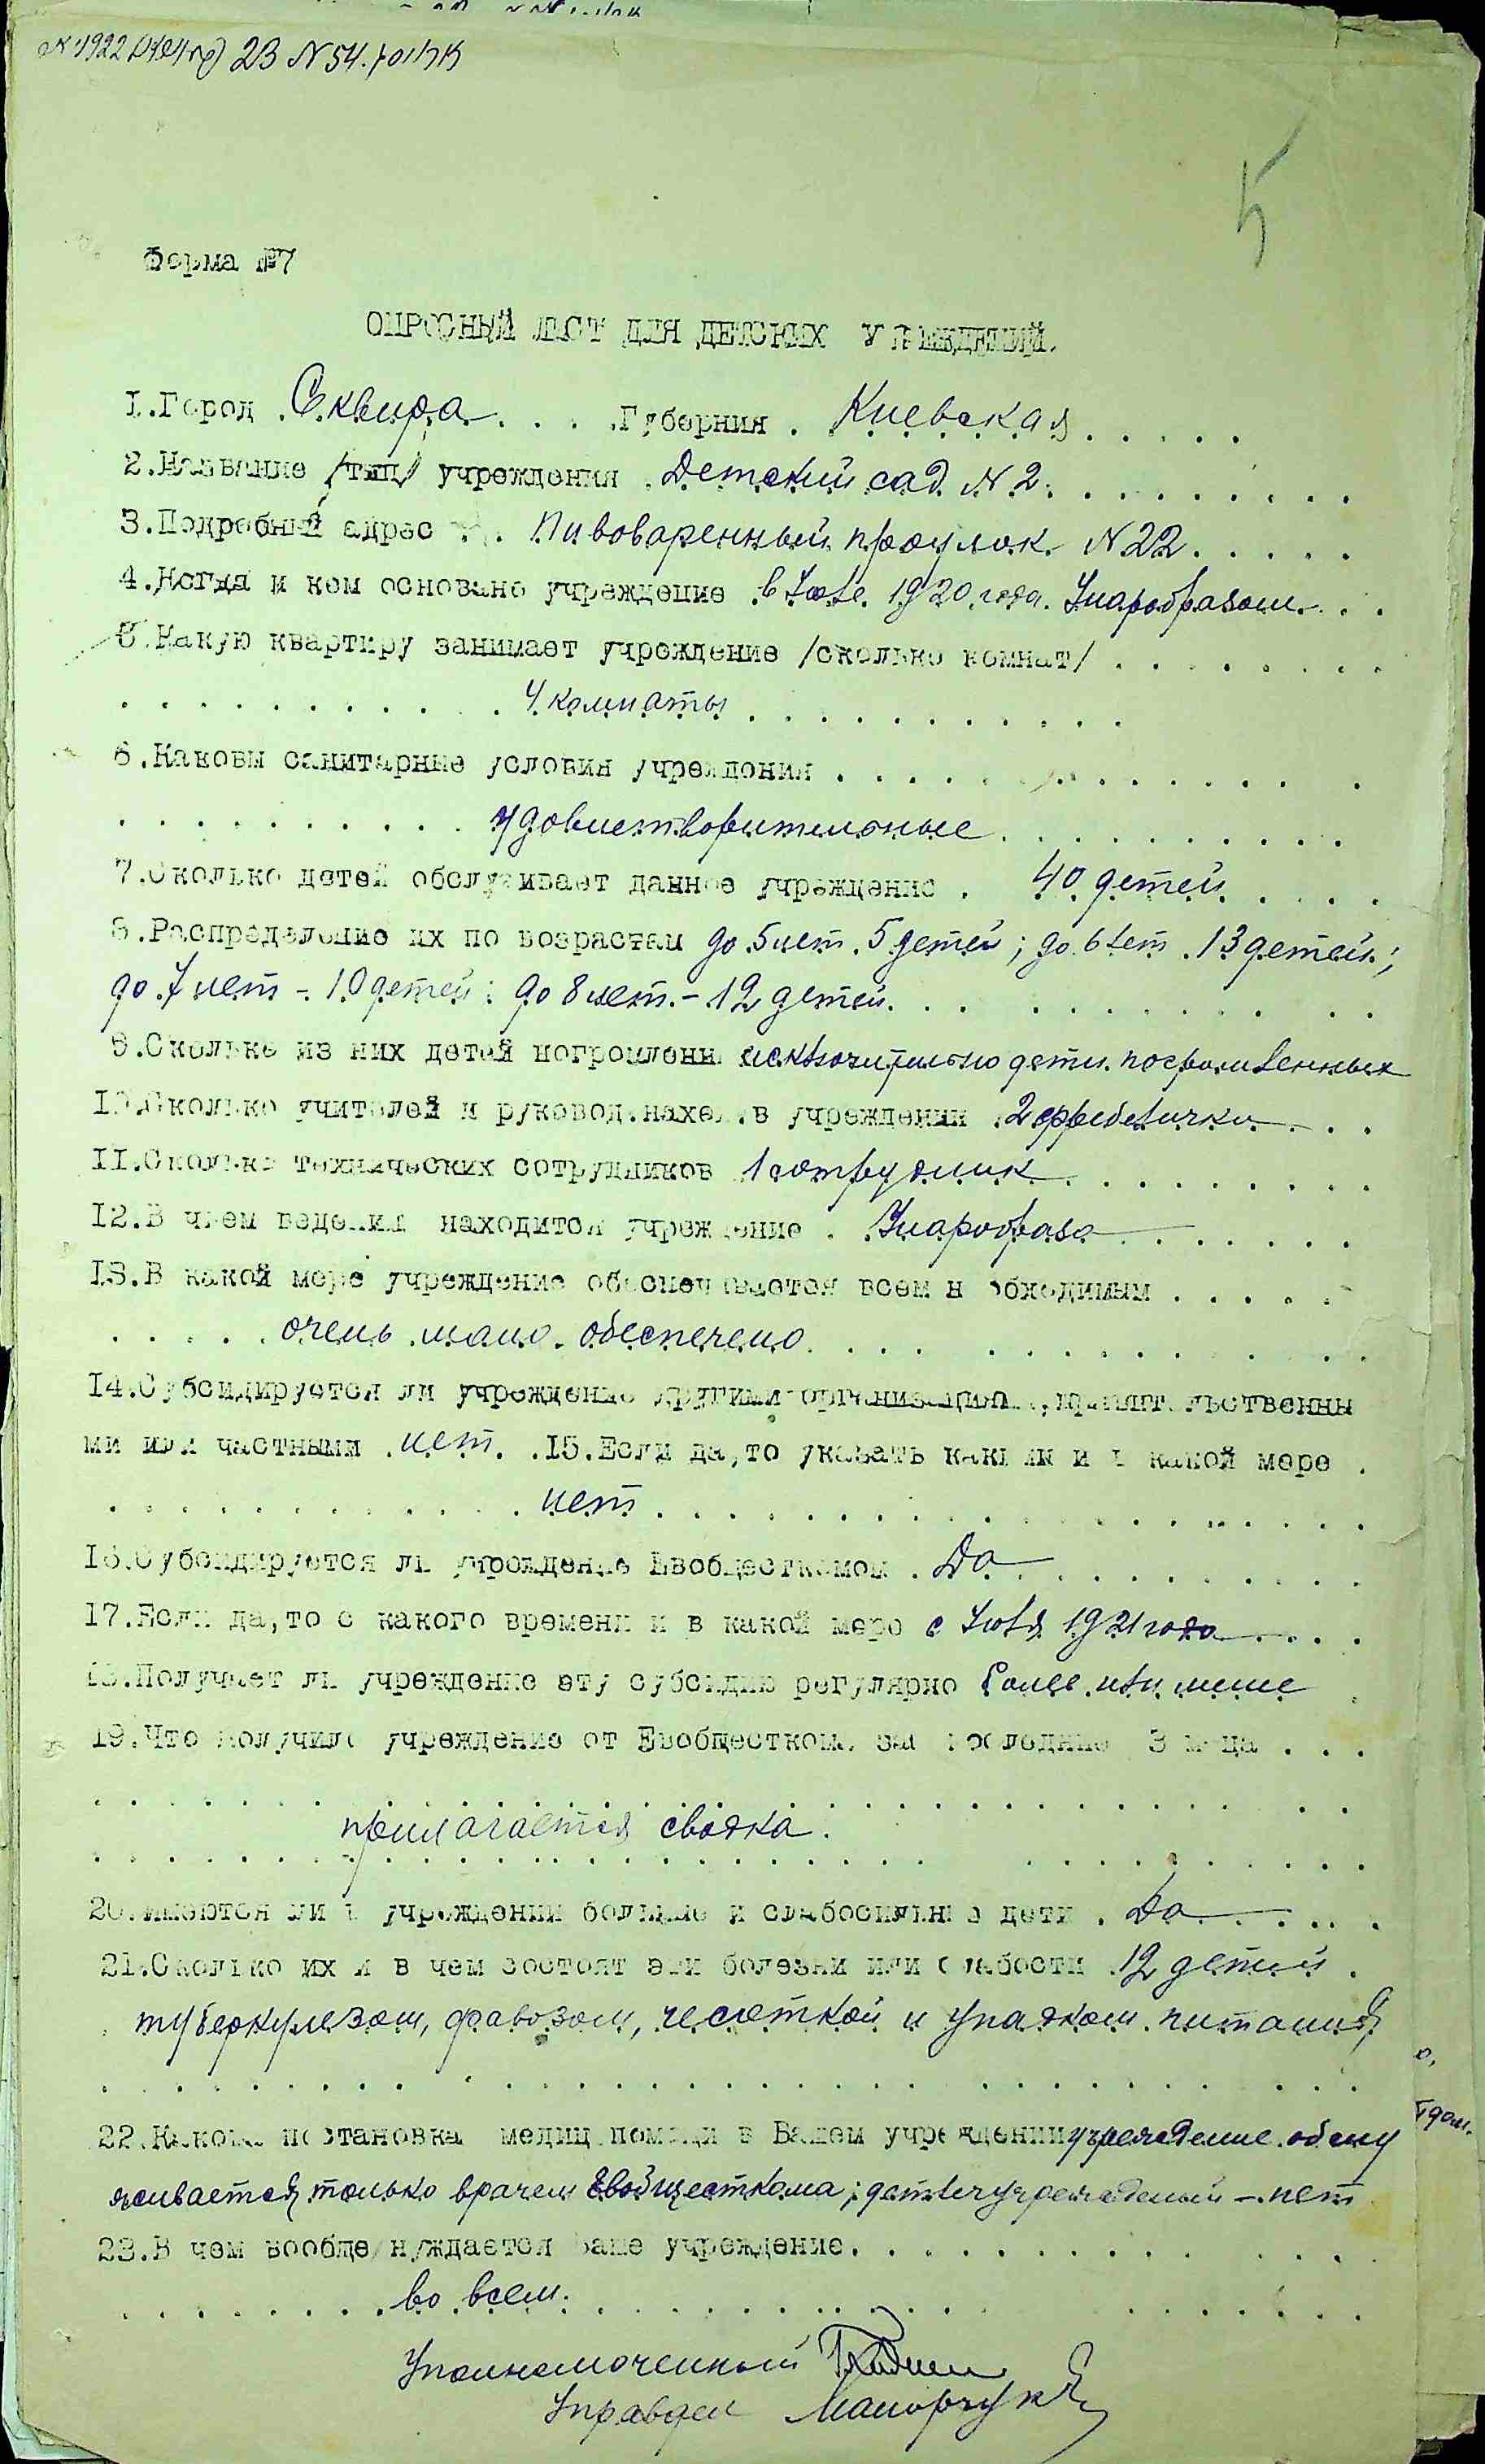 23 N 54.
5
Форма №7
ОПРОСНЫЙ ЛИСТ ДЛЯ ДЕТСКИХ УЧРЕЖДЕНИЙ.
1.Город . Сквира . . . .Губерния . Киевская . . . . .
2.Название /тип/ учреждения . Детский сад N 2 . . . . . . . . .
3.Подробный адрес . . Пивоваренный проулок N 22 . . . . .
4.Когда и кем основано учреждение . в Июле 1920 года. Унаробразом . . .
5.Какую квартиру занимает учреждение /сколько комнат/ . . . . . . . .
. . . . . . . . . . 4 комнаты . . . . . . . . . . .
6.Каковы санитарные условия учреждения . . . . . . . . . . . . .
. . . . . . . . . . удовлетворительные . . . . . . . . . .
7.Сколько детей обслуживает данное учреждение . 40 детей . . . .
8.Распределение их по возрастам до 5 лет. 5 детей; до 6 лет. 13 детей;
до 7 лет - 10 детей; до 8 лет. - 12 детей. . . . . . . . . . .
9.Сколько из них детей погромленн исключительно дети погромленных
10.Сколько учителей и руковод.нахо .в учреждении . 2 фребелички . . .
11.Сколько технических сотрудников 1 сотрудник . . . . . . . . .
12.В чьем ведении находится учреждение . Унаробраза . . . . . . .
13.В какой мере учреждение обеспечивается всем необходимым . . . . .
. . . . . очень мало обеспечено . . . . . . . . . . . .
14.Субсидируется ли учреждение другими организациями, правительственны
ми или частными . нет. .15.Если да,то указать какими и в какой мере .
. . . . . . . . . . . . нет . . . . . . . . . . . . . . . . . .
16.Субсидируется ли учреждение Евобщесткомом . Да . . . . . . . . . .
17.Если да,то с какого времени и в какой мере с Июля 1921 года . . . .
18.Получает ли учреждение эту субсидию регулярно более или мене
19.Что получило учреждение от Евобщесткома за последние 3 м-ца . . .
прилагается сводка.
20.Имеются ли в учреждении больные и слабосильные дети . Да . . . . .
21.Сколько их и в чем состоят эти болезни или слабости . 12 детей .
туберкулезом, фавозом, чесоткой и упадком питания,
22.Какова постановка медиц.помощи в Вашем учреждении учреждение обслу
живается только врачем Евобщесткома; учреждений - нет
23.В чем вообще нуждается Ваше учреждение. . . . . . . . . . . .
. . . . . . . . во всем. . . . . . . . . . . . . . . . .
Уполномоченный
Управдел